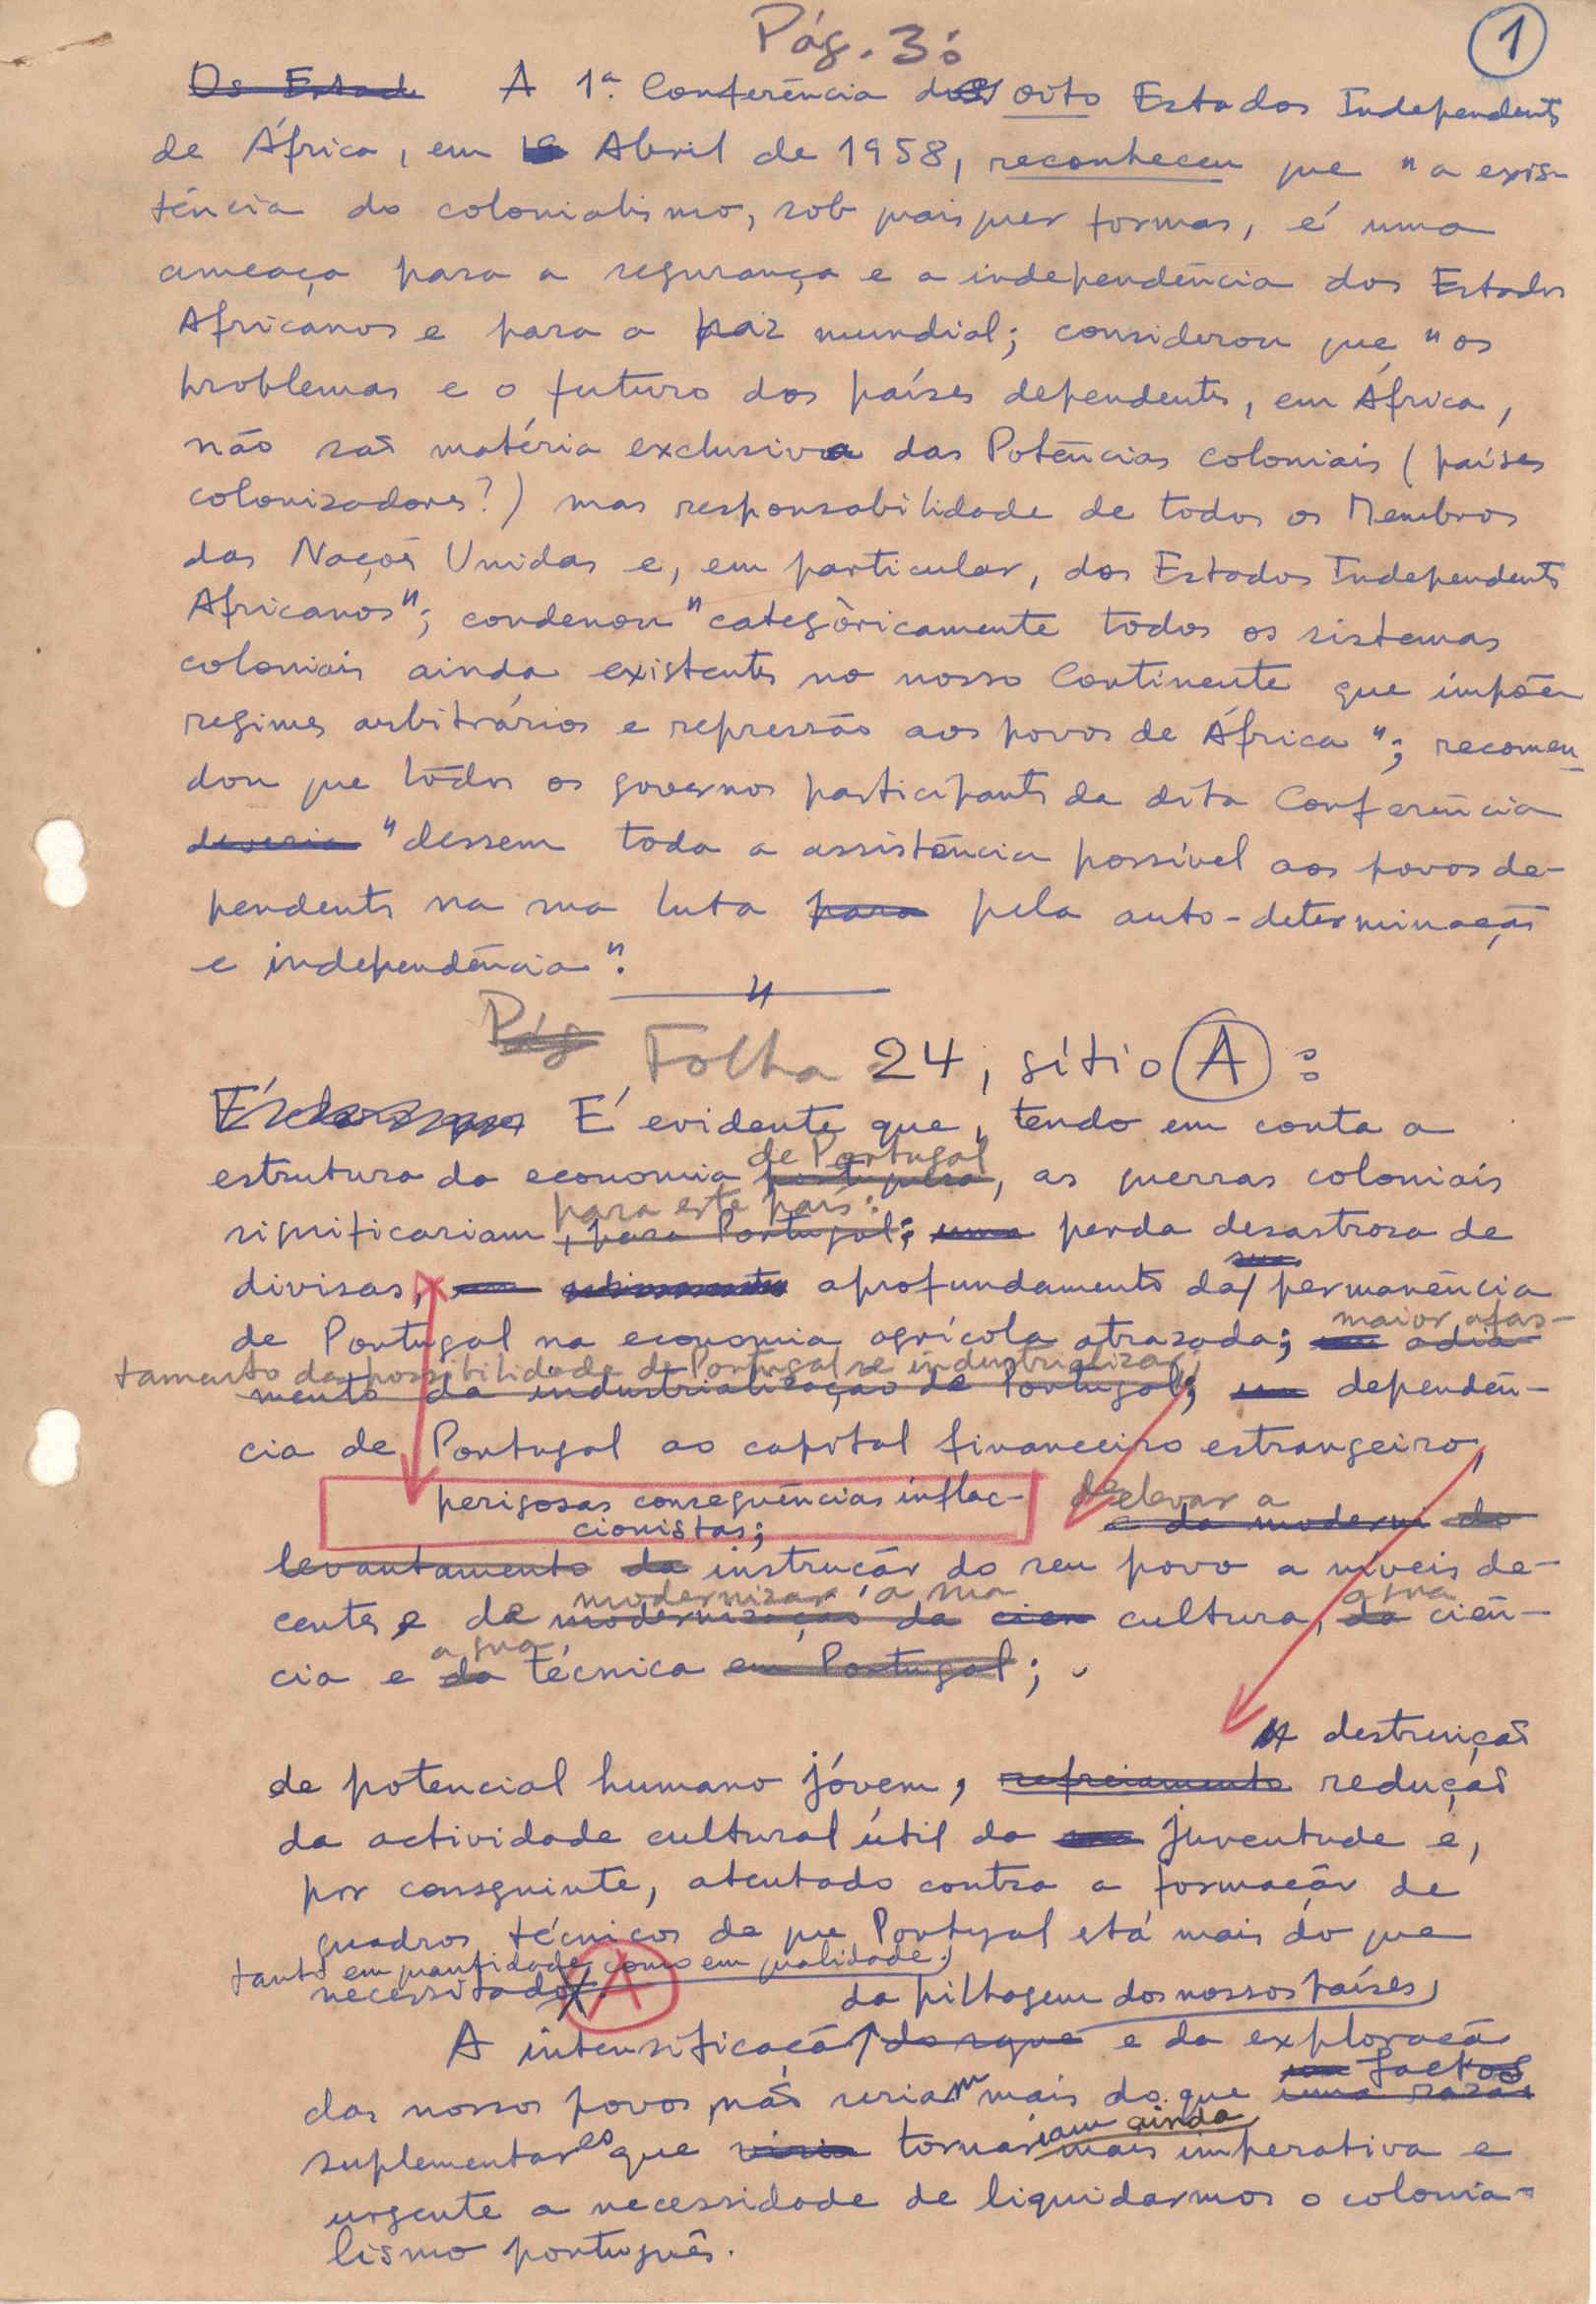 Pág. 3:
1
Os Estad A 1ª Conferência dos oito Estados Independentes
de África, em Abril de 1958, reconheceu que "a exis-
tência do colonialismo, sob quaisquer formas, é uma
ameaça para a segurança e a independência dos Estados
Africanos e para a paz mundial; considerou que "os
problemas e o futuro dos países dependentes, em África,
não são matéria exclusiva das Potências coloniais (países
colonizadores?) mas responsabilidade de todos os Membros
das Nações Unidas e, em particular, dos Estados Independentes
Africanos"; condenou "categòricamente todos os sistemas
coloniais ainda existentes no nosso Continente que impõem
regimes arbitrários e repressão aos povos de África"; recomen-
dou que todos os governos participantes da dita Conferência
deveria "dessem toda a assistência possível aos povos de-
pendentes na sua luta para pela auto-determinação
e independência".
Pág Folha 24, sítio A :
É evidente que, tendo em conta a
de Portugal
estrutura da economia portuguesa, as guerras coloniais
para este país:
significariam, para Portugal: uma perda desastrosa de
sua
divisas, um aprofundamento da permanência
de Portugal na economia agrícola atrasada; um adia-
maior afas-
tamento da possibilidade de Portugal se industrializar,
mento da industrialização de Portugal; um dependên-
cia de Portugal ao capital financeiro estrangeiro,
perigosas consequências inflac-
cionistas;
de elevar a
e da moderni do
levantamento da instrução do seu povo a níveis de-
modernizar a sua a sua
centes e de modernização da cien cultura, da ciên-
a sua
cia e da técnica em Portugal;
destruição
de potencial humano jóvem, refreiamento redução
da actividade cultural útil da sua juventude e,
por conseguinte, atentado contra a formação de
quadros técnicos de que Portugal está mais do que
tanto em quantidade como em qualidade.
necessitado A
da pilhagem dos nossos países,
A intensificação do saque e da exploração
factos
dos nossos povos não seriam mais do que uma razão
iam ainda
suplementares que viria tornar mais imperativa e
urgente a necessidade de liquidarmos o colonia-
lismo português.